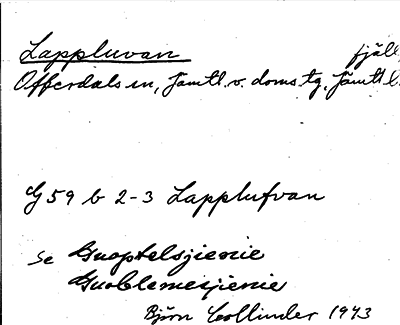 Lappluvan fjäll
Offerdals sn, Jämtl. v. doms tg, Jämtl.
G 59 b 2-3 Lapplufvan
se Guoptelsjienie
Guoblemesjienie
Björn Collinder 1943